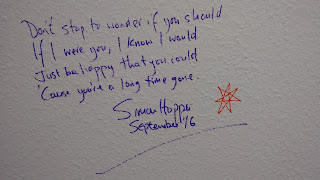 Don't stop to wonder if you should
If I were you, I know I would
Just be happy that you could
'Cause you're a long time gone.
Simon Hoppe
September '16